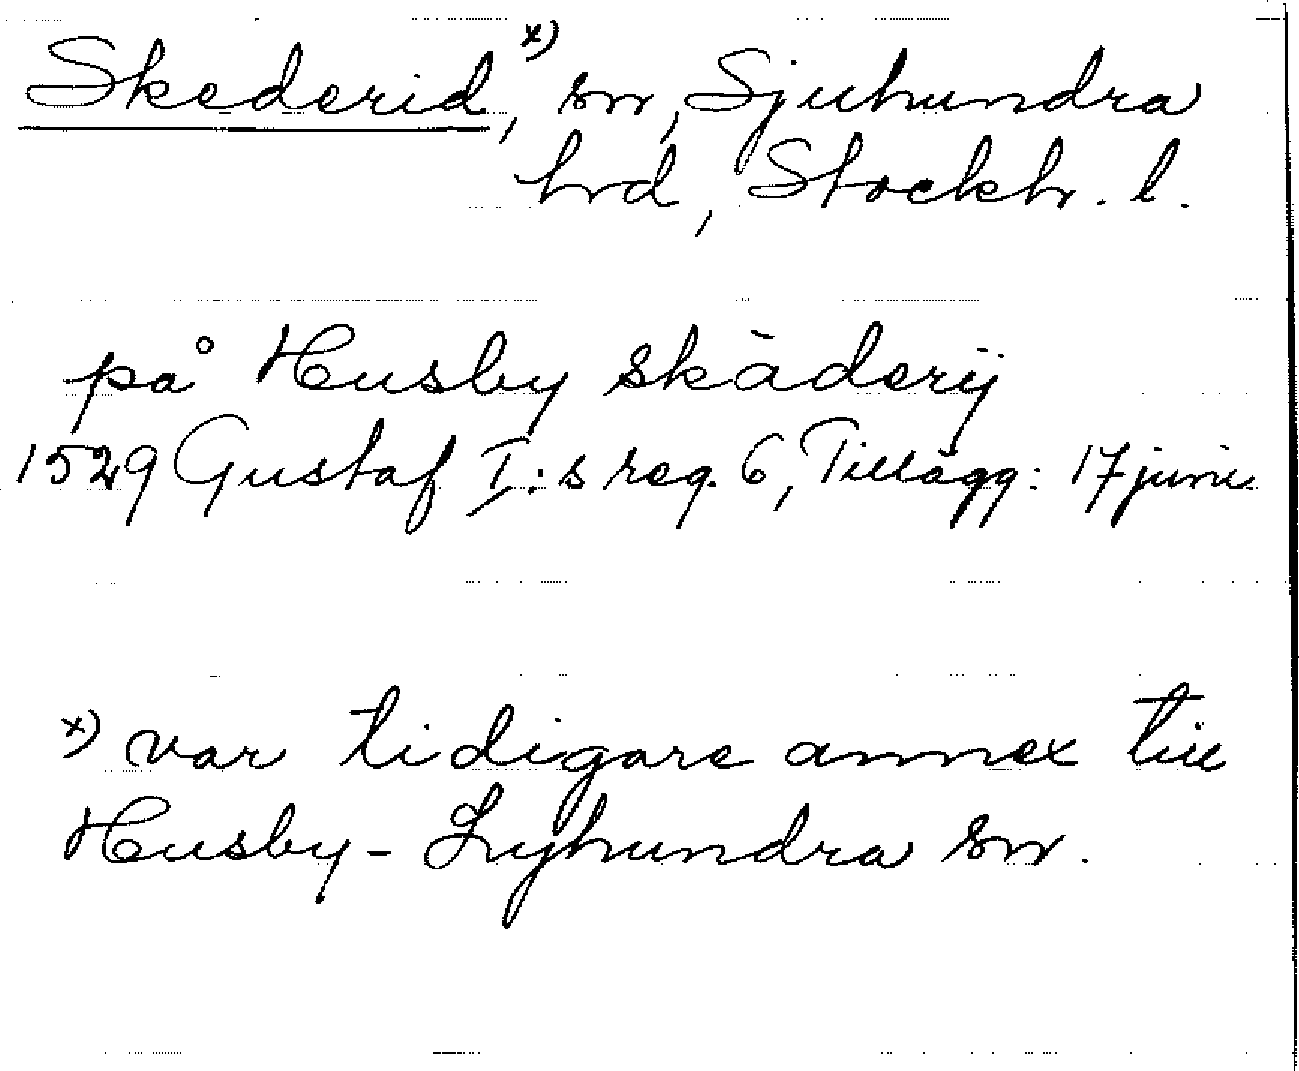 Skederid, x) sn, Sjuhundra
hrd, Stockh. l.
på Husby skäderij
1529 Gustaf I:s reg. 6, Tillägg: 17 juni
x) var tidigare annex till
Husby-Lyhundra sn.